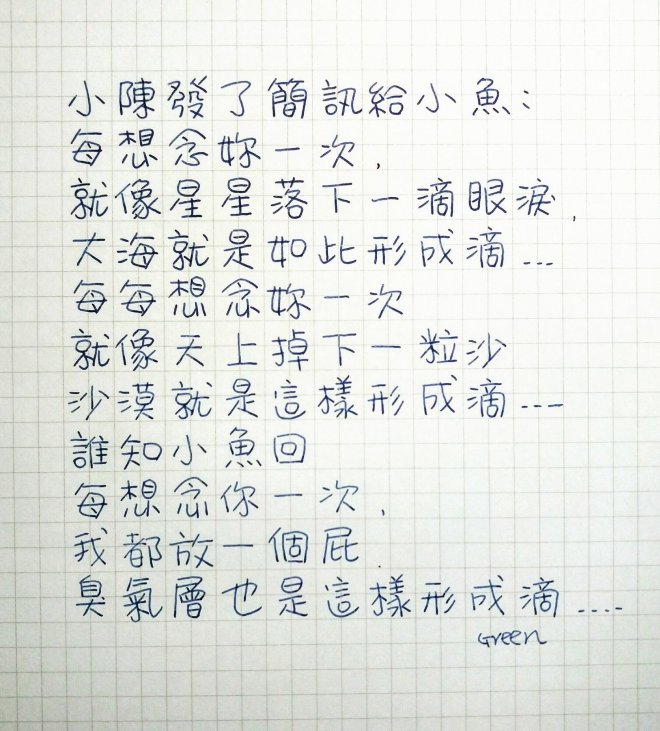 小陳發了簡訊給小魚：
每想念妳一次，
就像星星落下一滴眼淚，
大海就是如此形成滴...
每每想念妳一次
就像天上掉下一粒沙
沙漠就是這樣形成滴...
誰知小魚回
每想念你一次，
我都放一個屁.
臭氣層也是這樣形成滴....
Green